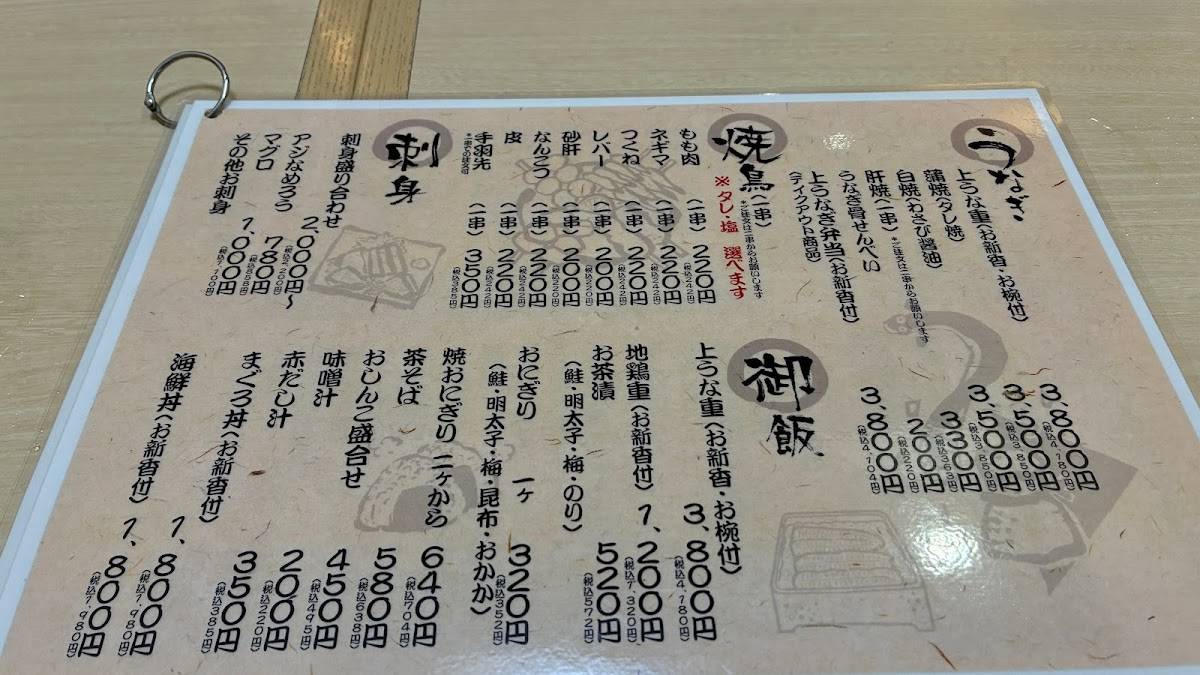 うなぎ
上うな重(お新香・お椀付) 3,800円(税込4,180円)
蒲焼(タレ焼) 3,500円(税込3,850円)
白焼(わさび醤油) 3,500円(税込3,850円)
肝焼(一串) *ご注文は二串からお願いします 330円(税込363円)
うなぎ骨せんべい 200円(税込220円)
上うなぎ弁当(お新香付) 3,800円(税込4,104円)
(テイクアウト商品)
焼鳥(一串) *ご注文は二串からお願いします
※タレ・塩 選べます
もも肉 (一串) 220円(税込242円)
ネギマ (一串) 220円(税込242円)
つくね (一串) 220円(税込242円)
レバー (一串) 200円(税込220円)
砂肝 (一串) 200円(税込220円)
なんこつ (一串) 220円(税込242円)
皮 (一串) 220円(税込242円)
手羽先 (一串) 350円(税込385円)
刺身
刺身盛り合わせ 2,000円〜(税込2,200円)
アジなめろう 780円(税込858円)
マグロ 1,000円
その他お刺身
御飯
上うな重(お新香・お椀付) 3,800円(税込4,180円)
地鶏重(お新香付) 1,200円(税込1,320円)
お茶漬 520円(税込572円)
(鮭・明太子・梅・のり)
おにぎり 一ヶ 320円(税込352円)
(鮭・明太子・梅・昆布・おかか)
焼おにぎり 二ヶから 640円(税込704円)
茶そば 580円(税込638円)
おしんこ盛合せ 450円(税込495円)
味噌汁 200円(税込220円)
赤だし汁 350円(税込385円)
まぐろ丼(お新香付) 1,800円(税込1,980円)
海鮮丼(お新香付) 1,800円(税込1,980円)